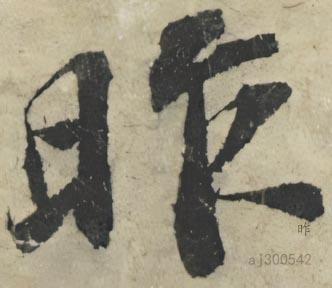 昨
昨
aj300542